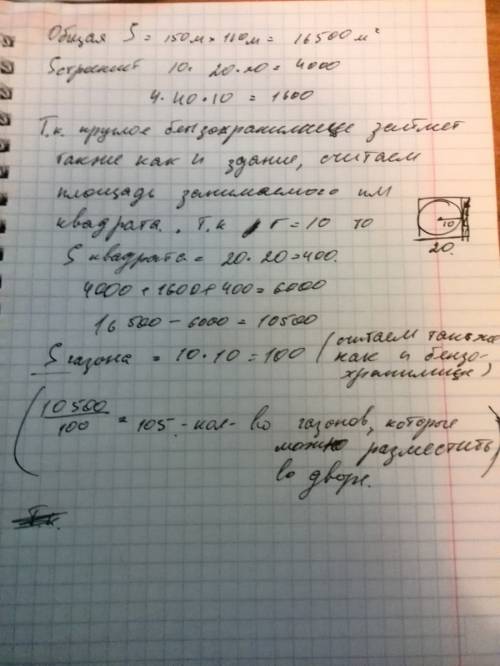 Общая S = 150м × 110м = 16500 м²
S строений 10 · 20·20 = 4000
4·40·10 = 1600
Т.к. круглое бензохранилище займет
также как и здание, считаем
площадь занимаемого им
квадрата. Т.к r = 10 то
10
20
S квадрата = 20·20=400.
4000 + 1600 + 400 = 6000
16500 - 6000 = 10500
S газона = 10·10 = 100 (считаем также
как и бензо-
хранилище)
(10500/100 = 105 - кол-во газонов, которые
можно разместить
во дворе.)
Т.к.